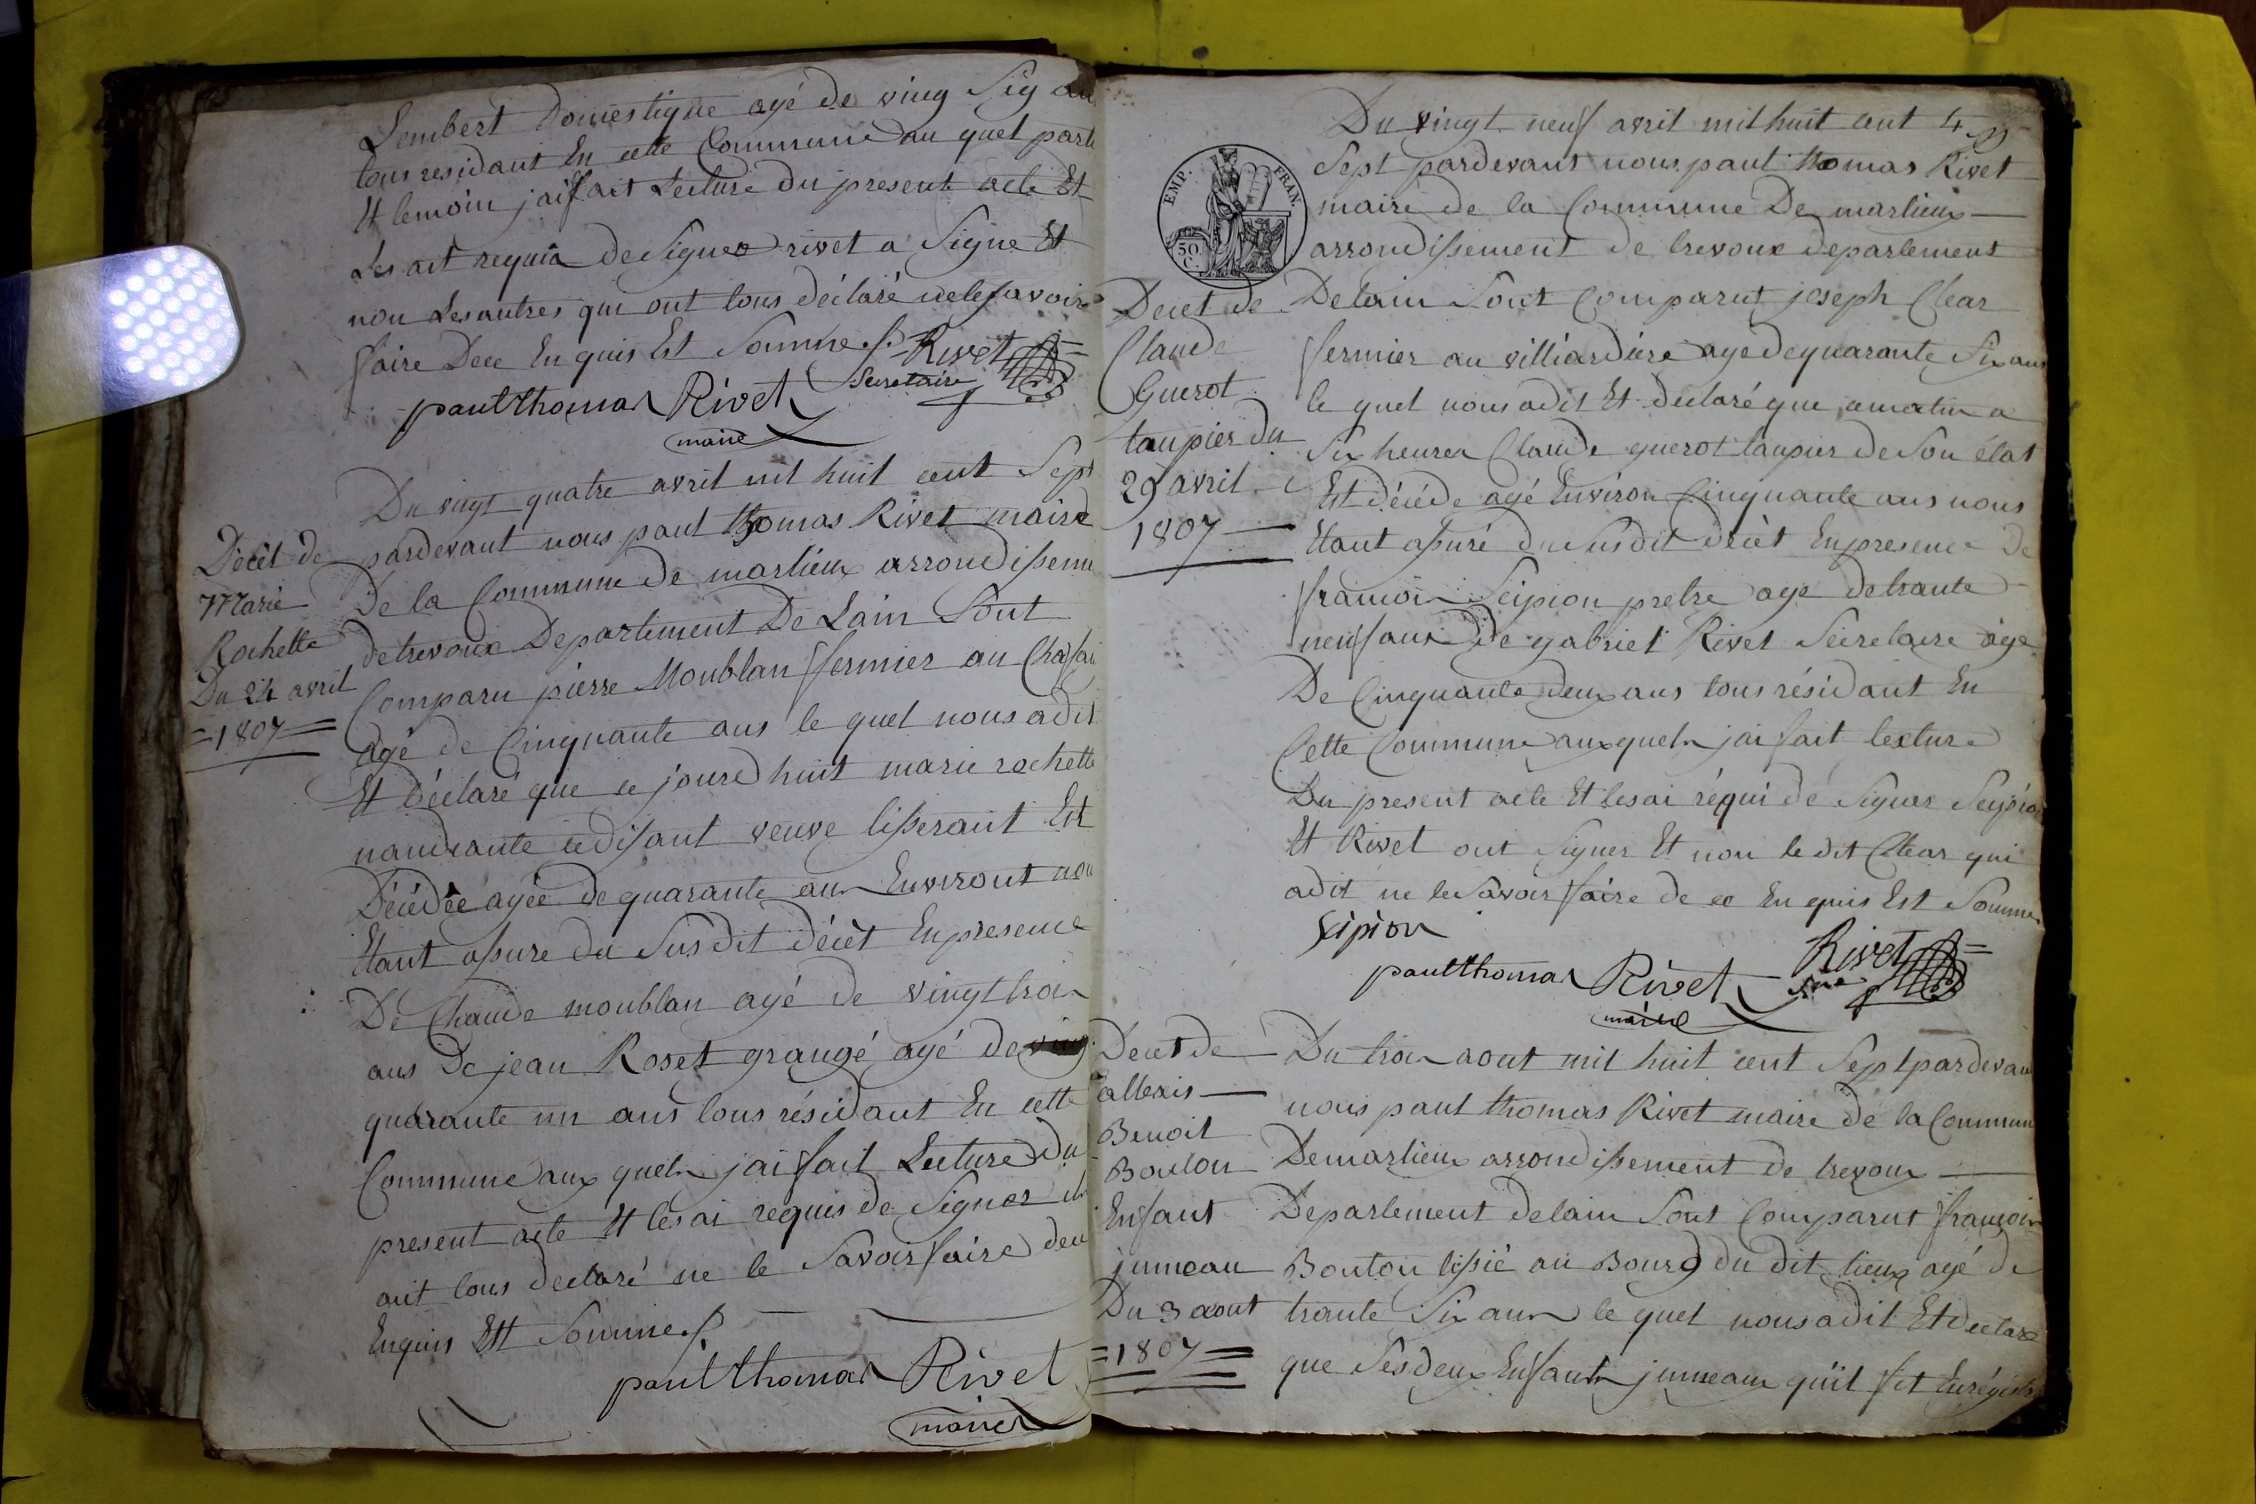 Lembert Domestique agé de ving Sig an
tous residant En cette Commune au quel parti
Et temoin jaifait Lecture du present acte Et
Les ait requis de Signer rivet a Signe Et
non Les autres qui ont tous déclaré nele savoir
faire Dece En quis Est Somme f. Rivet
Secretaire
paul thomas Rivet
maire
Du vingt quatre avril mil huit cent Sept
Décèt de
Marie
Rochette
Du 24 avril
=1807=
pardevant nous paul thomas Rivet maire
De la Commune de marlieux arrondissem
detrevoux Departement De Lain Sont
Comparu pierre Moublan fermier au
agé de Cinquante ans le quel nous adit
Et déclaré que ce jourdhuit marie rochette
ce disant veuve tisserant Est
Décédée agée de quarante ans Environt nou
Etant assure du Susdit décèt En presence
De Claude moublan agé de vingt trois
ans De jean Roset grangé agé de
quarante un ans tous résidant En cette
Commune aux quels jai fait Lecture du
present acte Et les ai requis de Signer ils
ont tous déclaré ne le Savoir faire dece
Enquis Est Somme f
paul thomas Rivet
maire
EMP. FRAN.
50 C.
Du vingt neuf avril mil huit cent
Sept pardevant nous paul thomas Rivet
maire de la Commune De marlieux
arrondissement de trevoux departement
Decet de
Claude
Guerot
taupier du
29 avril
1807
Delain Sont Comparut joseph Clear
fermier au villiardiere age dequarante Six ans
le quel nous adit Et declaré que cematin a
Six heures Claude guerot taupier de Son état
Est décéde agé Environ Cinquante ans nous
Etant assuré du Susdit décèt En presence De
francois Scipion pretre age detrante
neuf ans de gabriel Rivet Secretaire age
De Cinquante deux ans tous résidant En
Cette Commune auxquels jai fait lecture
Du present acte Et les ai réqui dé Signer Scipion
Et Rivet ont Signer Et non le dit Clear qui
adit ne le Savoir faire de ce En quis Est Somme
Scipion
paul thomas Rivet
maire
Rivet
Decet de
allexis
Benoit
Bouton
Enfant
jumeau
Du 3 aout
=1807=
Du trois aout mil huit cent Sept pardevan
nous paul thomas Rivet maire de la Commun
Demarlieux arrondissement de trevoux
Departement delain Sont Comparut francois
Bouton tissié au Bourg du dit lieux agé de
trante Six ans le quel nous adit Et declaré
que Ses deux Enfants jumeaux quil fit Enrégist